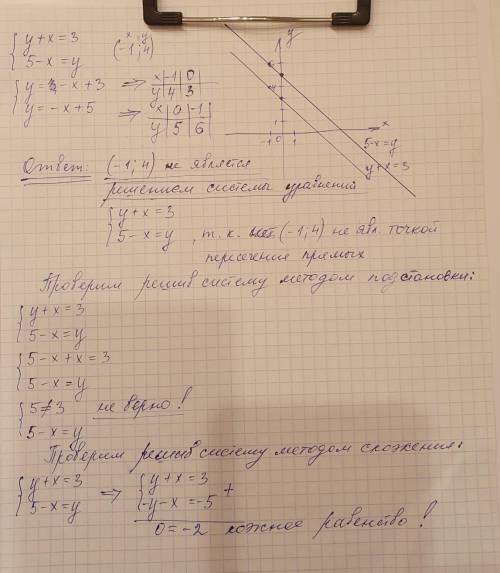 { y + x = 3
{ 5 - x = y
x y
(-1; 4)
{ y = - x + 3 => x | -1 | 0
y | 4 | 3
{ y = - x + 5 => x | 0 | -1
y | 5 | 6
y
x
-1 0 1
1
5-x=y
y+x=3
Ответ: (-1; 4) не является
решением системы уравнений
{ y + x = 3
{ 5 - x = y , т. к. (-1; 4) не явл. точкой
пересечение прямых
Проверим решив систему методом подстановки:
{ y + x = 3
{ 5 - x = y
{ 5 - x + x = 3
{ 5 - x = y
{ 5 ≠ 3 не верно!
{ 5 - x = y
Проверим решив систему методом сложения:
{ y + x = 3 => { y + x = 3
{ 5 - x = y { -y - x = -5 +
0 = -2 ложное равенство!